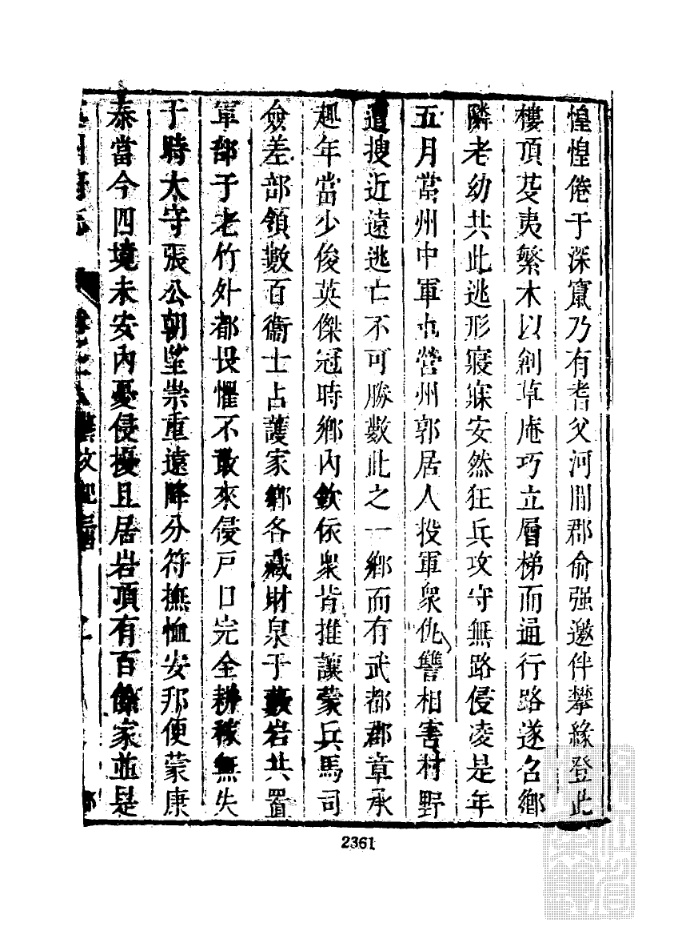 惶惶倦于深竄乃有耆父河間郡俞强邀伴攀緣登此
樓頂芟夷繁木以創草庵巧立層梯而通行路遂名鄉
隣老幼共此逃形寢寐安然狂兵攻守無路侵凌是年
五月當州中軍屯營州郭居人投軍衆仇讐相害村野
遭搜近遠逃亡不可勝數此之一鄉而有武都郡章承
趣年當少俊英傑冠時鄉內欽依衆肯推讓蒙兵馬司
僉差部領數百衞士占護家鄉各藏財泉于藪岩共置
軍部于老竹外都畏懼不敢來侵戸口完全耕稼無失
于時太守張公朝堂崇重遠降分符撫恤安那便蒙康
泰當今四境未安內憂侵擾且居岩頂有百餘家並是
2361